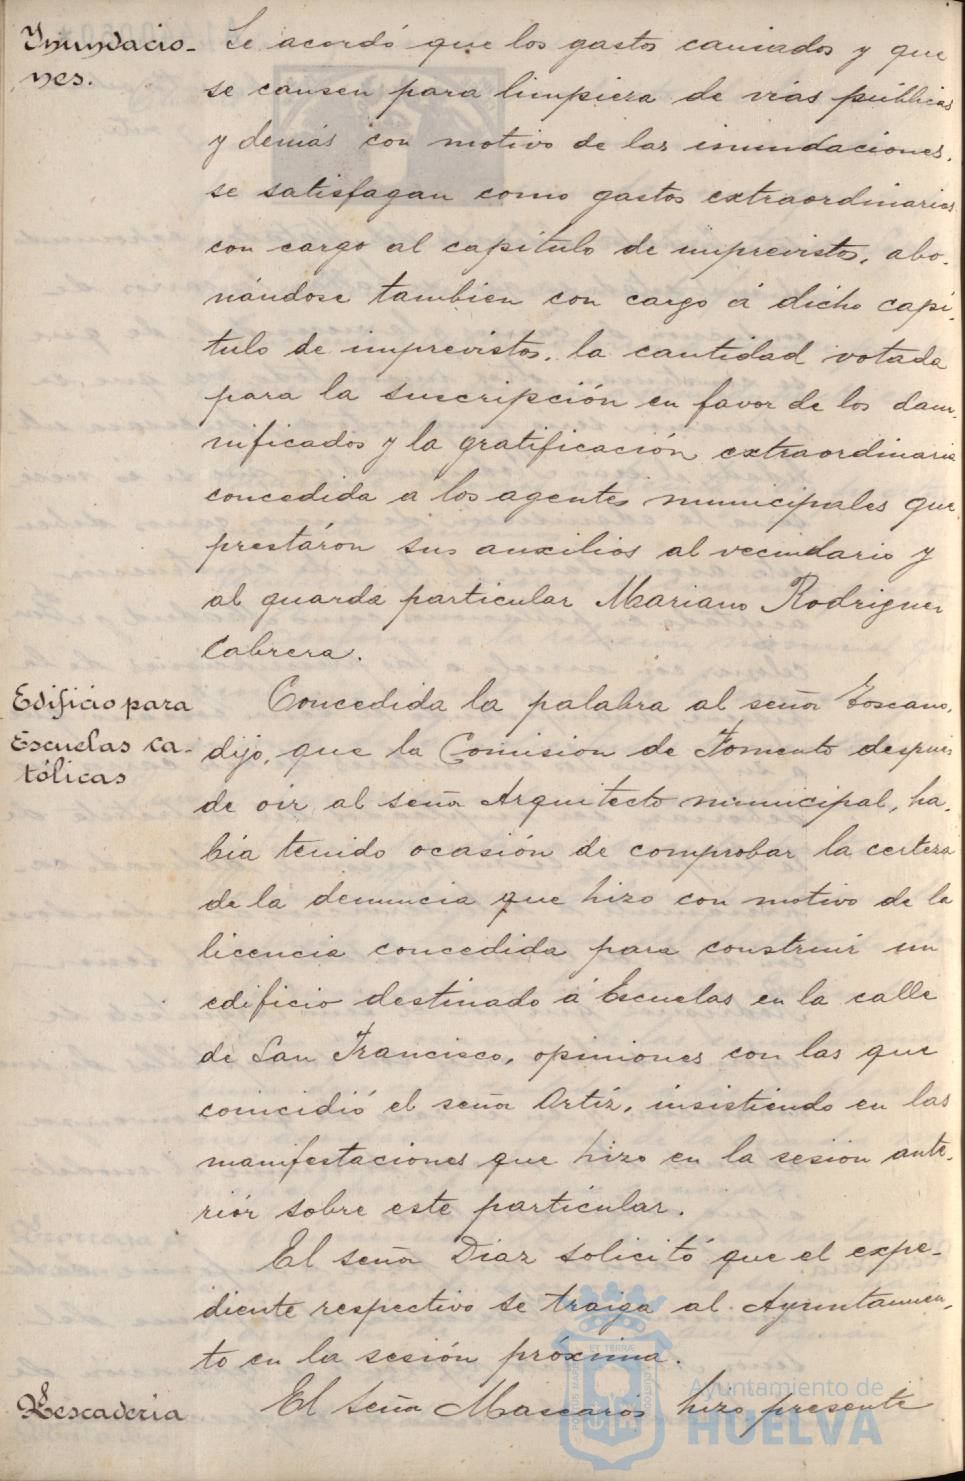 Inundacio-
nes.
Se acordó que los gastos causados y que
se causen para limpieza de vías públicas
y demás con motivo de las inundaciones,
se satisfagan como gastos extraordinarios
con cargo al capítulo de imprevistos, abo-
nándose tambien con cargo á dicho capí-
tulo de imprevistos, la cantidad votada
para la suscripción en favor de los dam-
nificados y la gratificación extraordinaria
concedida a los agentes municipales que
prestáron sus auxilios al vecindario y
al guarda particular Mariano Rodriguez
Cabrera.
Edificio para
Escuelas ca-
tólicas
Concedida la palabra al señor Toscano,
dijo, que la Comision de Fomento despues
de oir al señor Arquitecto municipal, ha-
bía tenido ocasión de comprobar la certeza
de la denuncia que hizo con motivo de la
licencia concedida para construir un
edificio destinado á Escuelas en la calle
de San Francisco, opiniones con las que
coincidió el señor Ortíz, insistiendo en las
manifestaciones que hizo en la sesión ante-
riór sobre este particular.
El señor Diaz solicitó que el expe-
diente respectivo se traiga al Ayuntamien-
to en la sesión próxima.
Pescaderia
El Señor Mascarós hizo presente
Ayuntamiento de
HUELVA